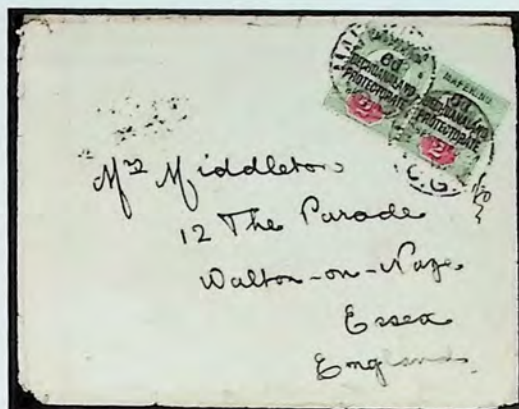 MAFEKING
6d.
BECHUANALAND
PROTECTORATE
2d
BECHUANALAND
PROTECTORATE
2d
C.G.H.
Mrs Middleton
12 The Parade
Walton-on-Naze
Essex
England